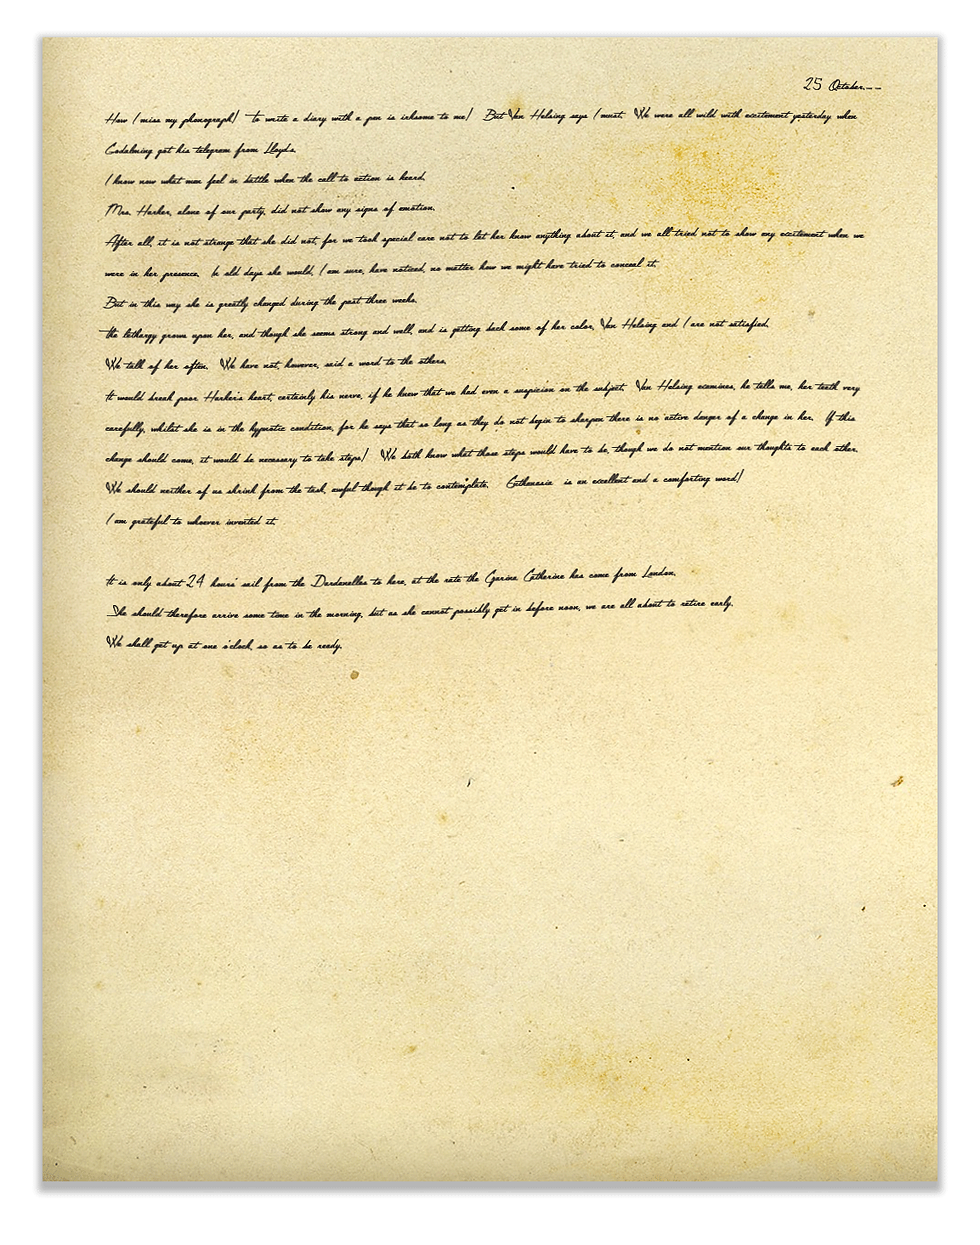 25 October.--
How I miss my phonograph! To write a diary with a pen is irksome to me! But Van Helsing says I must. We were all wild with excitement yesterday when
Godalming got his telegram from Lloyd's.
I know now what men feel in battle when the call to action is heard.
Mrs. Harker, alone of our party, did not show any signs of emotion.
After all, it is not strange that she did not, for we took special care not to let her know anything about it, and we all tried not to show any excitement when we
were in her presence. In old days she would, I am sure, have noticed, no matter how we might have tried to conceal it.
But in this way she is greatly changed during the past three weeks.
The lethargy grows upon her, and though she seems strong and well, and is getting back some of her color, Van Helsing and I are not satisfied.
We talk of her often. We have not, however, said a word to the others.
It would break poor Harker's heart, certainly his nerve, if he knew that we had even a suspicion on the subject. Van Helsing examines, he tells me, her teeth very
carefully, whilst she is in the hypnotic condition, for he says that so long as they do not begin to sharpen there is no active danger of a change in her. If this
change should come, it would be necessary to take steps! We both know what those steps would have to be, though we do not mention our thoughts to each other.
We should neither of us shrink from the task, awful though it be to contemplate. Euthanasia is an excellent and a comforting word!
I am grateful to whoever invented it.
It is only about 24 hours' sail from the Dardanelles to here, at the rate the Czarina Catherine has come from London.
She should therefore arrive some time in the morning, but as she cannot possibly get in before noon, we are all about to retire early.
We shall get up at one o'clock, so as to be ready.